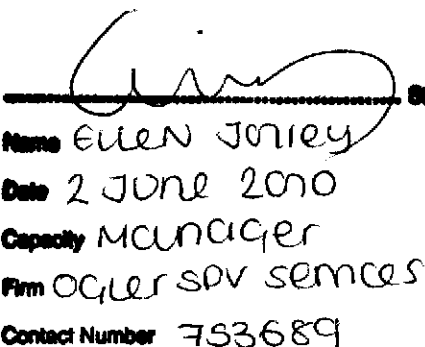 Name Ellen
Date 2 June 2010
Capacity Manager
Firm Ogier SPV Services
Contact Number 753689